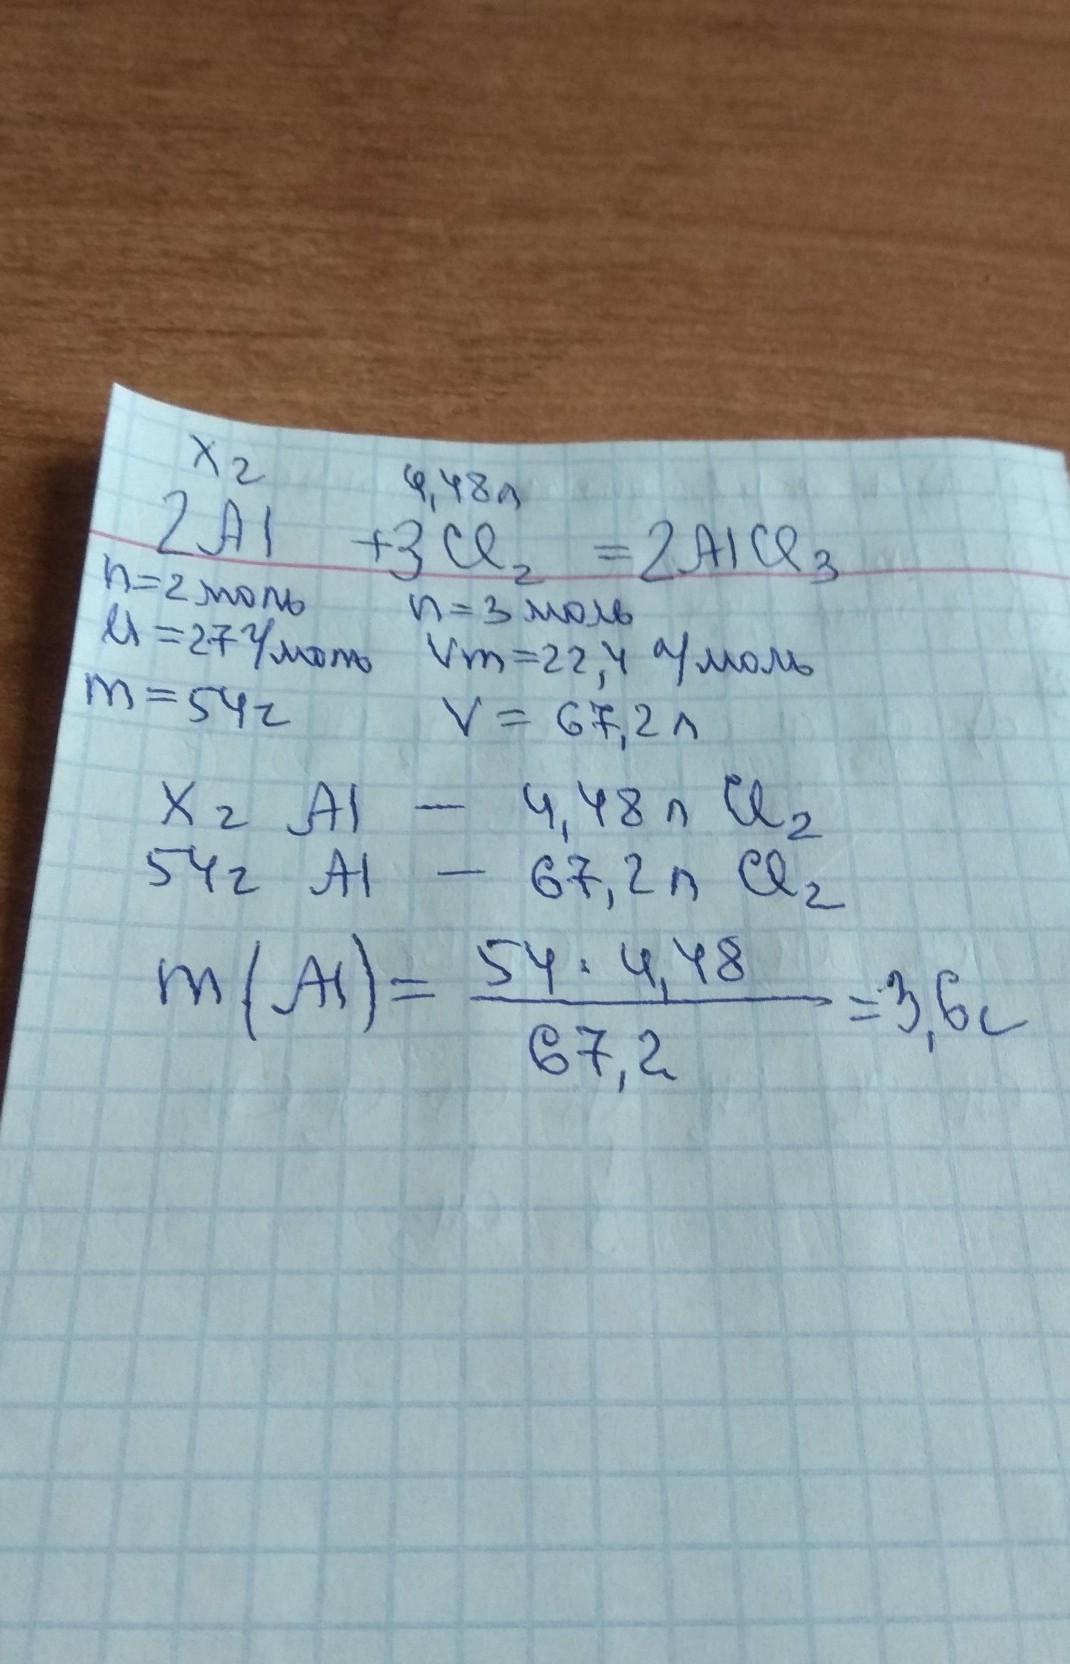 х г 4,48 л
2Al + 3Cl₂ = 2AlCl₃
n=2 моль n=3 моль
M=27 г/моль Vm=22,4 л/моль
m=54г V= 67,2 л
х г Al — 4,48 л Cl₂
54г Al — 67,2 л Cl₂
m(Al)= 54·4,48 / 67,2 =3,6г